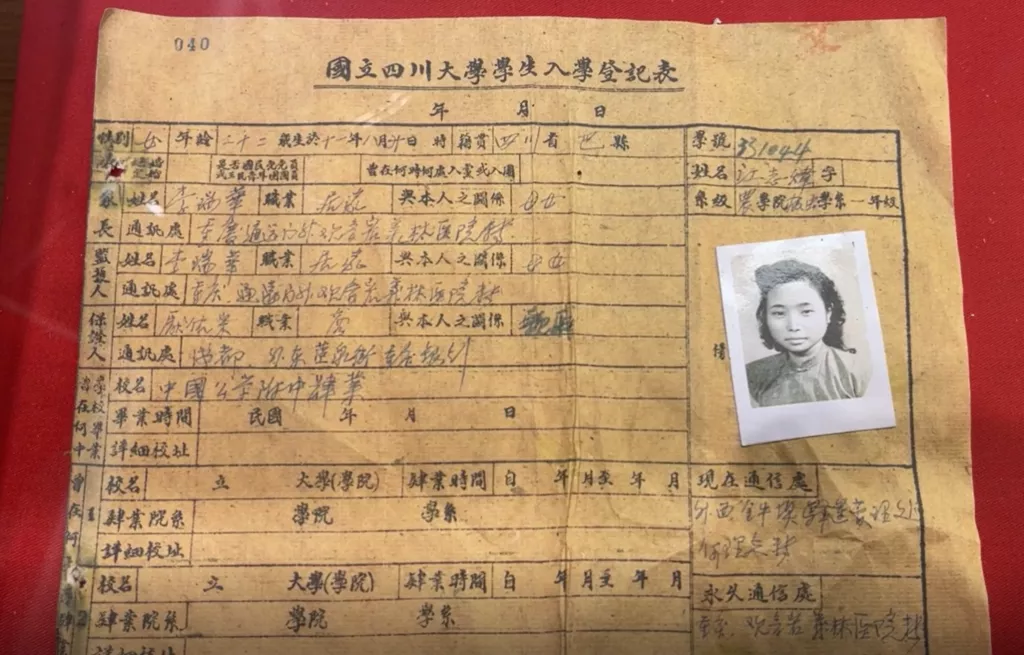 040
國立四川大學學生入學登記表
年 月 日
性別 女 年齡 二十二 歲生於十一年八月廿日 時 籍貫 四川省 巴縣
票號 331044
是否國民党党員或三民青年團團員 曾在何時何處入党或入團
姓名 江志煒 字
家長 姓名 李瑞華 職業 與本人之關係 母女
系級 農學院 學系一年級
通訊處 重慶 外观音岩義林医院
監護人 姓名 李瑞華 職業 與本人之關係 母女
通訊處 重慶 外观音岩義林医院
保證人 姓名 職業 商 與本人之關係
通訊處 成都 外東
曾在何中學校畢業 校名 中國公学附中肄業
畢業時間 民國 年 月 日
詳細校址
校名 立 大學(學院) 肄業時間 自 年 月至 年 月
現在通信處
肄業院系 學院 學系
外西
詳細校址
校名 立 大學(學院) 肄業時間 自 年 月至 年 月
永久通信處
肄業院系 學院 學系
重慶 观音岩義林医院
詳細校址